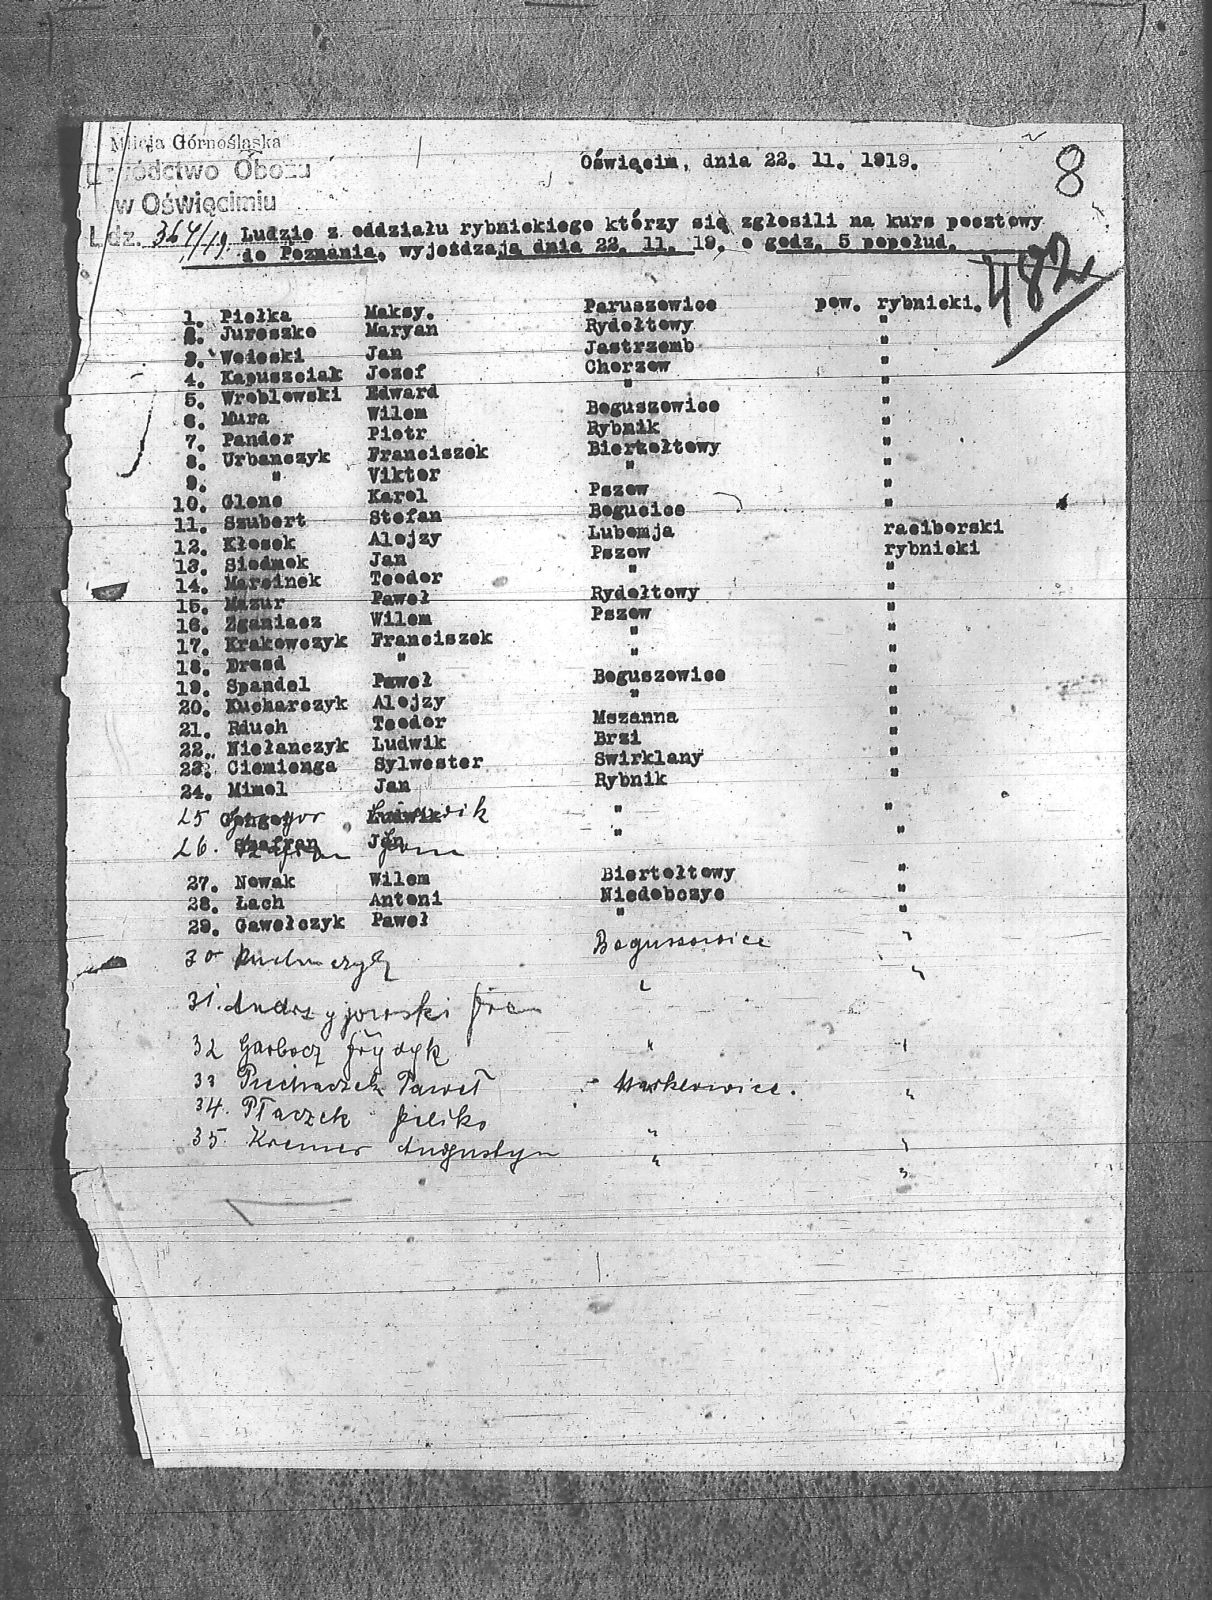 Milicja Górnośląska
Dowództwo Obozu
w Oświęcimiu
Ldz. 364/19
Oświęcim, dnia 22. 11. 1919.
8
Ludzie z oddziału rybnickiego którzy się zgłosili na kurs pocztowy
do Poznania, wyjeżdzają dnia 22. 11. 19. o godz. 5 popołud.
482
1. Piełka Maksy. Paruszowice pow. rybnicki.
2. Juroszko Maryan Rydołtowy "
3. Woioski Jan Jastrzemb "
4. Kapuszciak Jozef Chorzow "
5. Wroblowski Edward " "
6. Mura Wilem Boguszowice "
7. Pander Piotr Rybnik "
8. Urbanczyk Franciszek Biertołtowy "
9. " Viktor " "
10. Glenc Karol Pszow "
11. Szubert Stefan Bogucice "
12. Kłosek Alojzy Lubomja raciborski
13. Siodmok Jan Pszow rybnicki
14. Marcinek Teodor " "
15. Mazur Paweł Rydołtowy "
16. Zganiacz Wilem Pszow "
17. Krakowczyk Franciszek " "
18. Brzed " " "
19. Spandel Paweł Boguszowice "
20. Kucharczyk Alojzy " "
21. Rduch Teodor Mszanna "
22. Niełanczyk Ludwik Brzi "
23. Ciemienga Sylwester Swirklany "
24. Mimel Jan Rybnik "
25 Ludwik " "
26. Szafran Jan " "
27. Nowak Wilem Biertołtowy "
28. Łach Antoni Niedobczyc "
29. Gawełczyk Paweł " "
30 Boguszowice "
31. " "
32 Garbocz Frydyk " "
33 Piechaczek Paweł - Markłowice. "
34. Płaczek " "
35 Kremer Augustyn " "